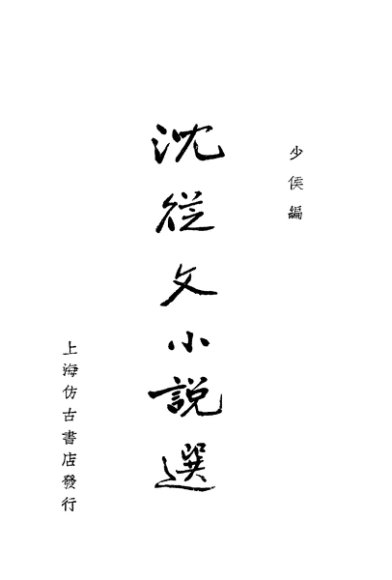 少侯編
沈從文小說選
上海仿古書店發行